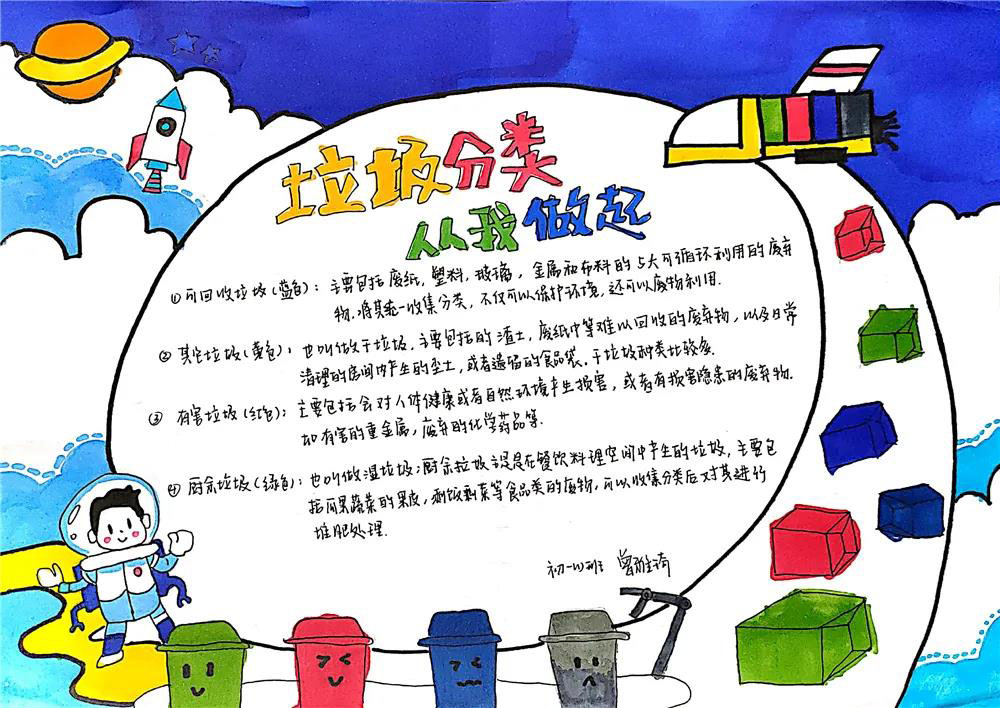 垃圾分类
从我做起
①可回收垃圾(蓝色):主要包括废纸,塑料,玻璃,金属和布料的5大可循环利用的废弃
物.将其统一收集分类,不仅可以保护环境,还可以废物利用.
②其它垃圾(黄色):也叫做干垃圾,主要包括的渣土,废纸巾等难以回收的废弃物,以及日常
清理的房间内产生的尘土,或者遗留的食品袋.干垃圾种类比较多.
③有害垃圾(红色):主要包括会对人体健康或者自然环境产生损害,或者有损害隐患的废弃物.
如有害的重金属,废弃的化学药品等.
④厨余垃圾(绿色):也叫做湿垃圾;厨余垃圾主要是在餐饮料理空间中产生的垃圾,主要包
括瓜果蔬菜的果皮,剩饭剩菜等食品类的废物,可以收集分类后对其进行
堆肥处理.
初一(1)班